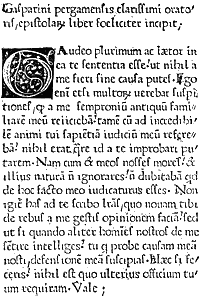 Gasparini pergamensis clarissimi orato
ris, epistolarum liber foeliciter incipit;
Gaudeo plurimum ac laetor in
ea te sententia esse: ut nihil a
me fieri sine causa putes. Ego
enim etsi multorum verebar suspi
tiones, quod a me sempronium antiquum fami
liarem meum reiiciebam: tamen cum ad incredibi
lem animi tui sapientiam iudicium meum refere
bam: nihil erat quare id a te improbari pu
tarem. Nam cum et meos nosses mores: et
illius naturam non ignorares: non dubitabam quid
de hoc facto meo iudicaturus esses. Non
igitur has ad te scribo litteras, quo novam tibi
de rebus a me gestis opinionem faciam: sed
ut si quando aliter homines nostros de me
sentire intelliges: tu qui probe causam meam
nosti, defensionem meam suscipias. Haec si fe
ceris: nihil est quo ulterius officium tu
um requiram. Vale;